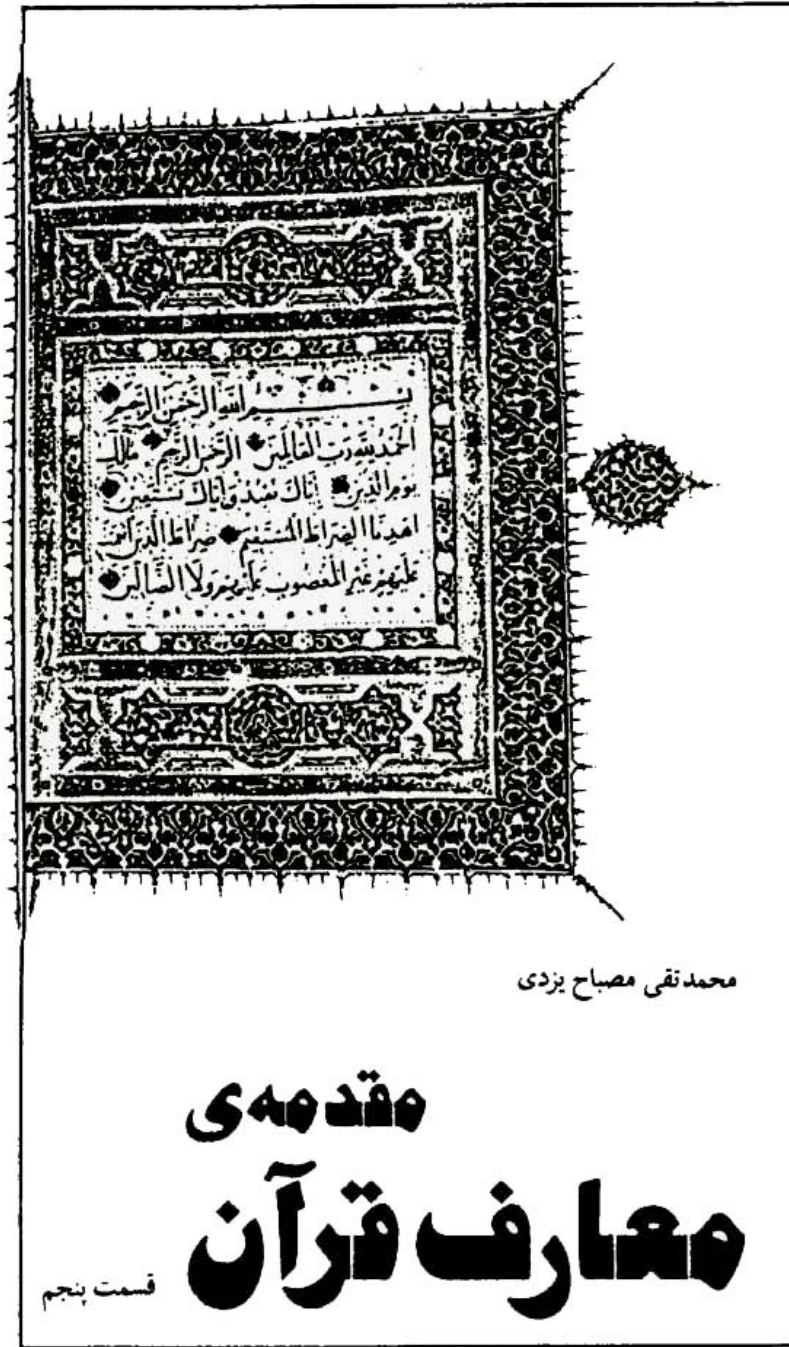 بسم الله الرحمن الرحيم
الحمد لله رب العالمين الرحمن الرحيم مالك
يوم الدين إياك نعبد وإياك نستعين
اهدنا الصراط المستقيم صراط الذين أنعمت
عليهم غير المغضوب عليهم ولا الضالين
محمدتقی مصباح یزدی
مقدمه‌ی
معارف قرآن
قسمت پنجم